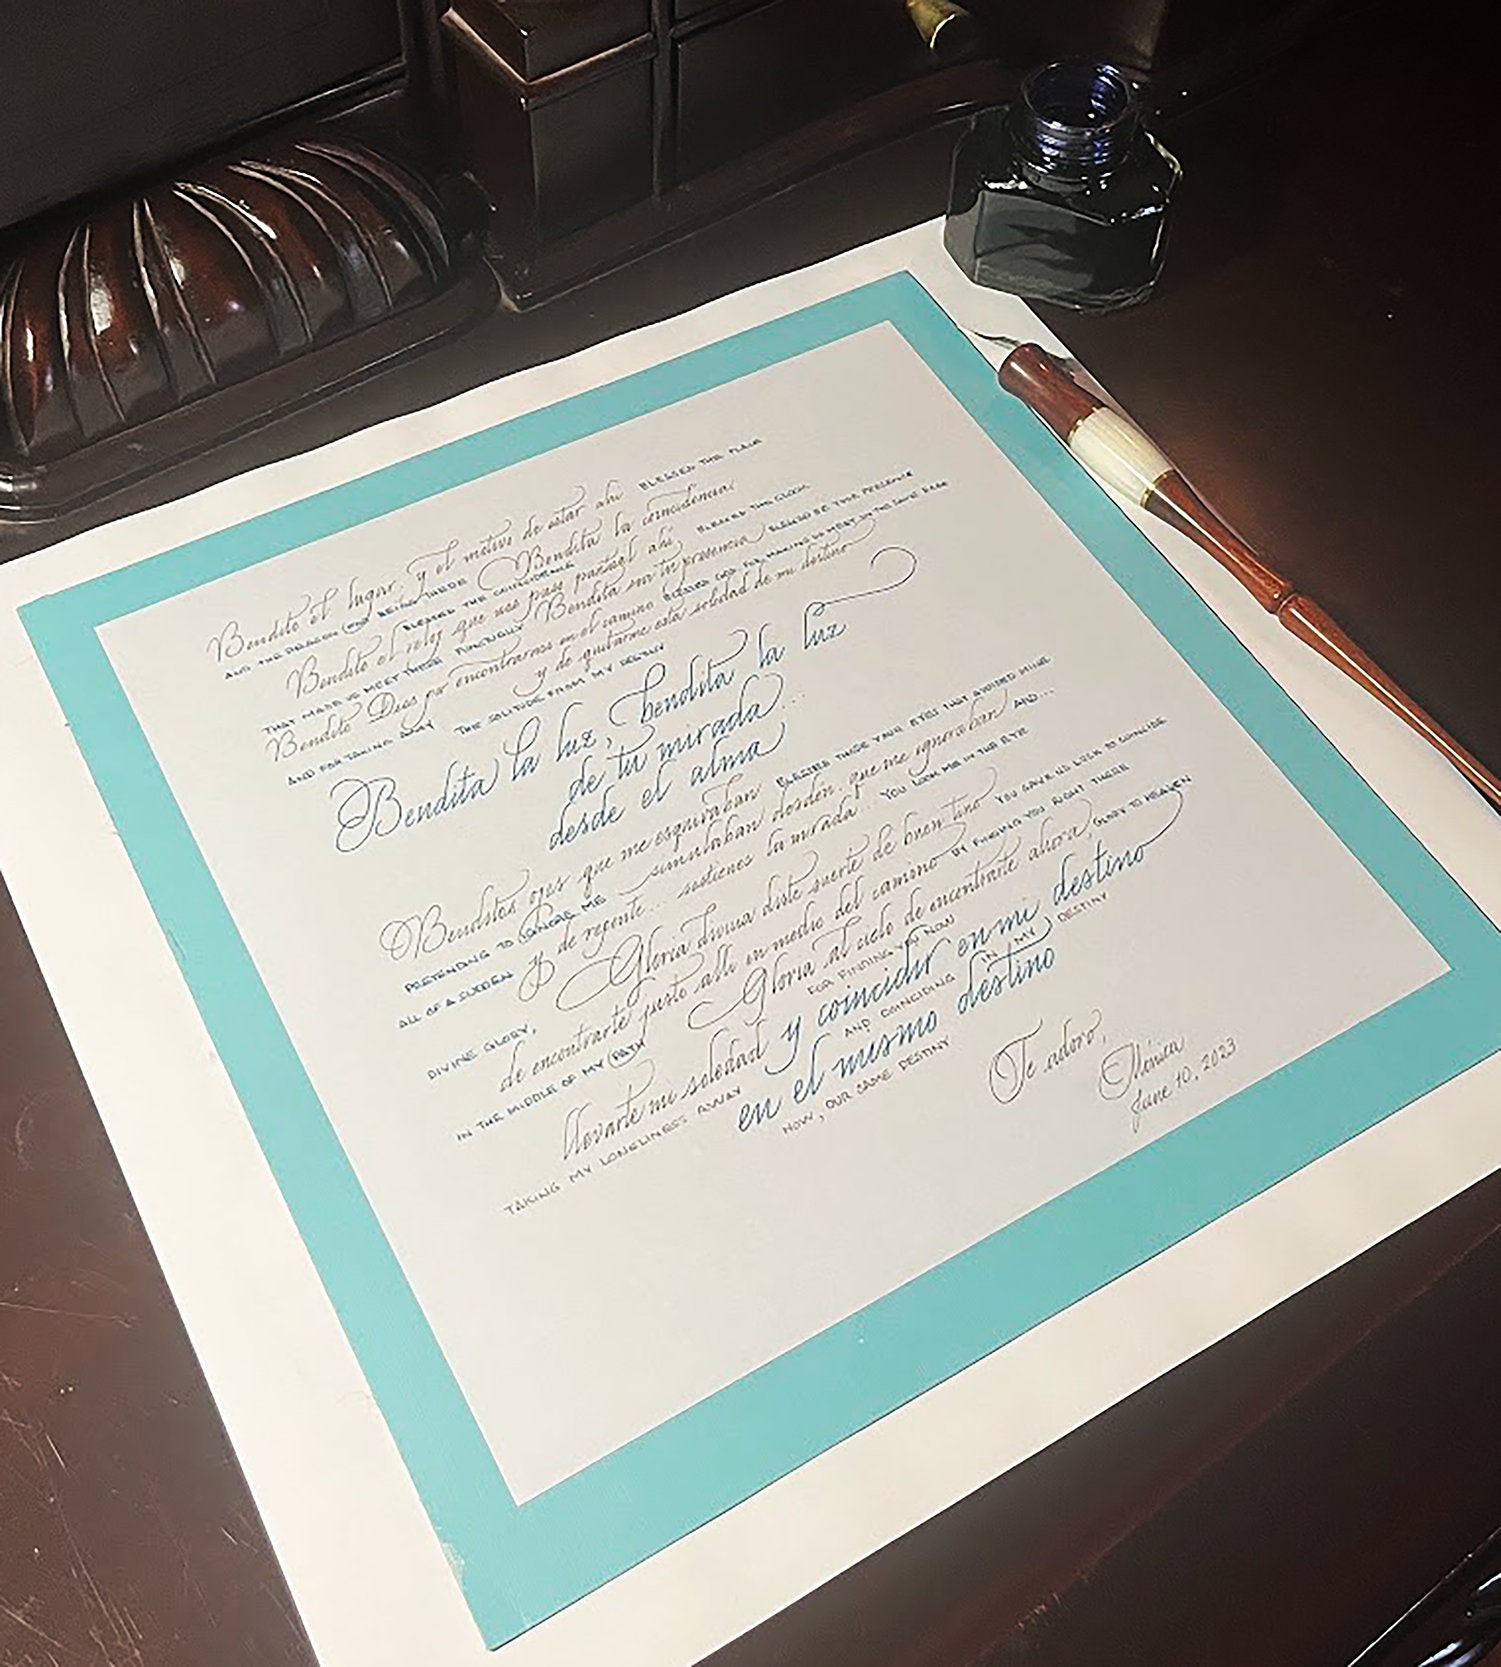 Bendito el lugar, y el motivo de estar ahí BLESSED THE PLACE
AND THE REASON FOR BEING THERE Bendita la coincidencia.
BLESSED THE COINCIDENCE
Bendito el reloj que nos puso puntual ahí BLESSED THE CLOCK
THAT MADE US MEET THERE PUNCTUALLY Bendita sea tu presencia BLESSED BE YOUR PRESENCE
Bendito Dios por encontrarnos en el camino BLESSED GOD FOR MAKING US MEET IN THE SAME
AND FOR TAKING AWAY y de quitarme esta soledad de mi destino
THE SOLITUDE FROM MY DESTINY
Bendita la luz, bendita la luz
de tu mirada...
desde el alma
Benditos ojos que me esquivaban BLESSED THOSE YOUR EYES THAT AVOIDED MINE
PRETENDING TO IGNORE ME simulaban desdén que me ignoraban AND...
ALL OF A SUDDEN y de repente... sostienes la mirada... YOU LOOK ME IN THE EYE
DIVINE GLORY, Gloria divina diste suerte de buen tino YOU GAVE US LUCK TO COINCIDE
de encontrarte justo allí en medio del camino BY FINDING YOU RIGHT THERE
IN THE MIDDLE OF MY PATH Gloria al cielo de encontrarte ahora, GLORY TO HEAVEN
FOR FINDING YOU NOW
llevarte mi soledad y coincidir en mi destino
TAKING MY LONELINESS AWAY AND COINCIDING IN MY DESTINY
en el mismo destino
NOW, OUR SAME DESTINY
Te adoro,
Mónica
June 10, 2023